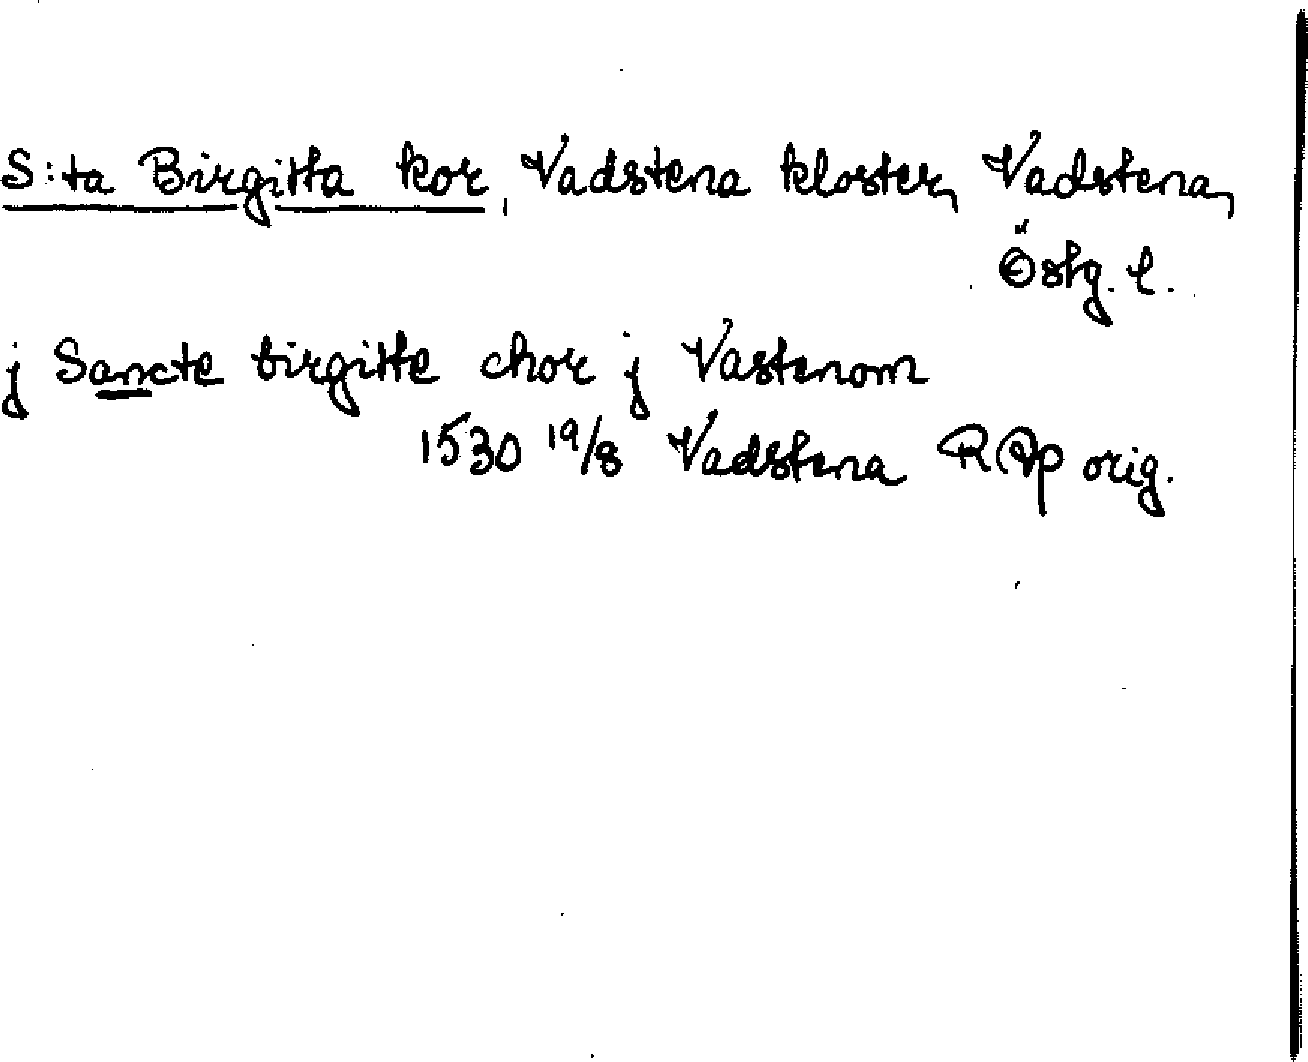 S:ta Birgitta kor, Vadstena kloster, Vadstena,
Östg. l.
j Sancte birgitte chor j Vastenom
1530 19/8 Vadstena RAp orig.